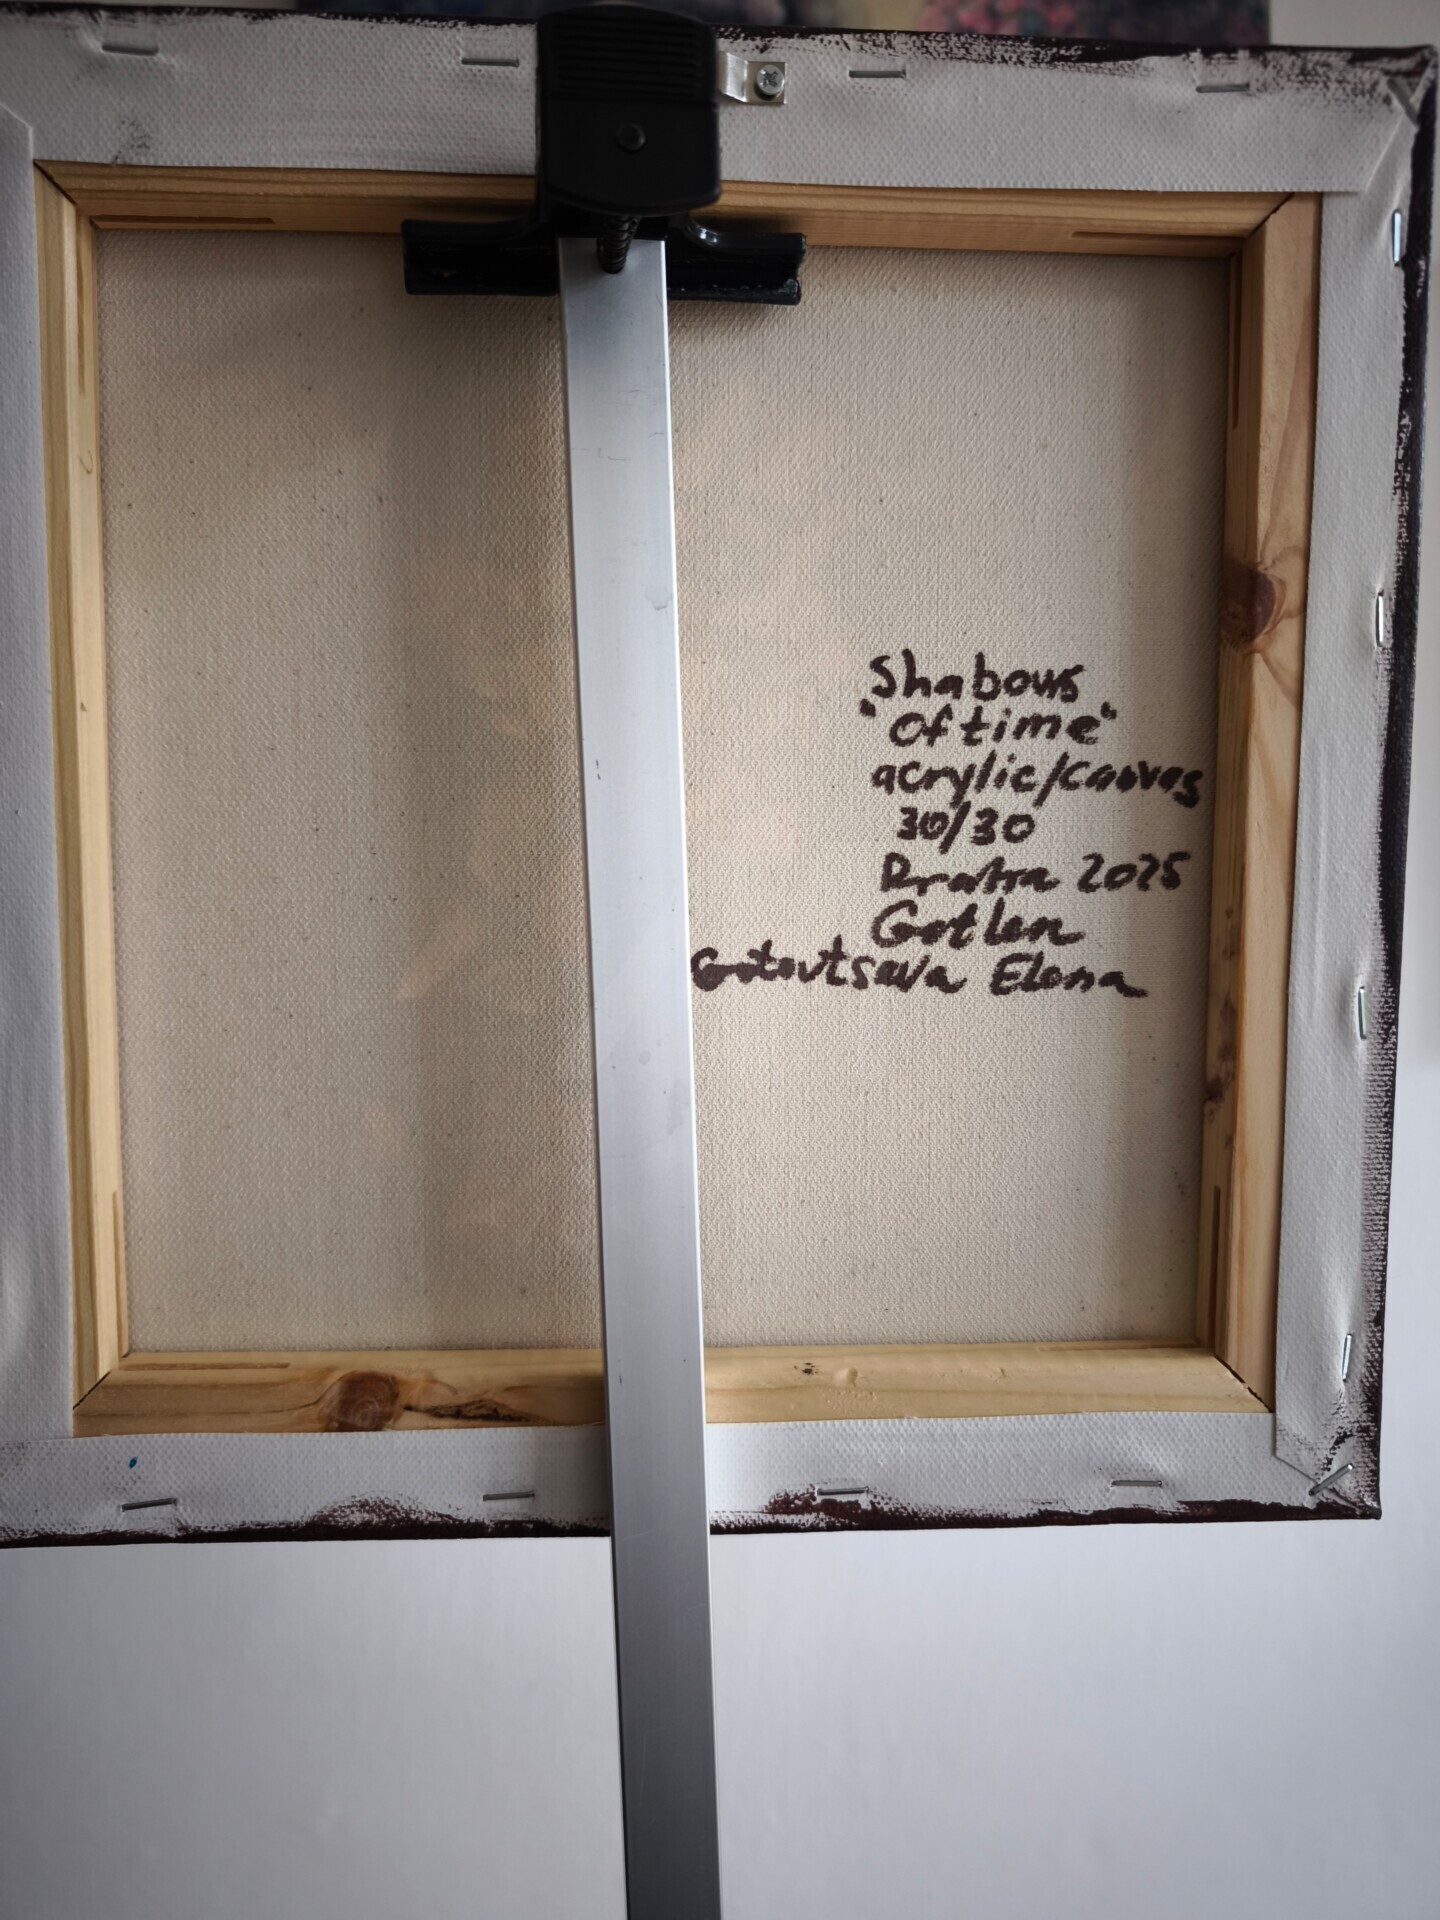 Shabows
"Of time"
acrylic/canvas
30/30
2025
Gotlen
Gotovtseva Elena